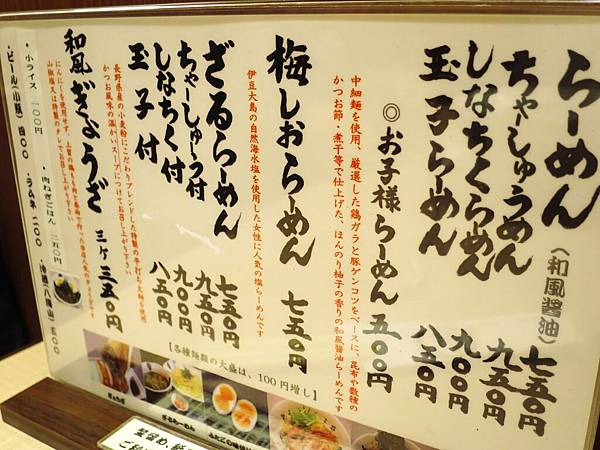 らーめん（和風醤油）七五〇円
ちゃーしゅうめん 九五〇円
しなちくらーめん 九〇〇円
玉子らーめん 八五〇円
◎お子様らーめん 五〇〇円
中細麺を使用、厳選した鶏ガラと豚ゲンコツをベースに、昆布や数種の
かつお節・煮干等で仕上げた、ほんのり柚子の香りの和風醤油らーめんです
梅しおらーめん 七五〇円
伊豆大島の自然海水塩を使用した女性に人気の塩らーめんです
ざるらーめん 七五〇円
ちゃーしゅー付 九五〇円
しなちく付 九〇〇円
玉子付 八五〇円
長野県産の小麦粉にこだわりブレンドした特製の平打ち太麺を使用
かつお風味の温かいスープにつけてお召し上がり下さい
和風ぎょうざ 三ヶ 三五〇円
・小ライス 一〇〇円
・肉ねぎごはん 二五〇円
・ビール（小瓶）四〇〇
・ラムネ 二〇〇
【各種麺類の大盛は、100円増し】